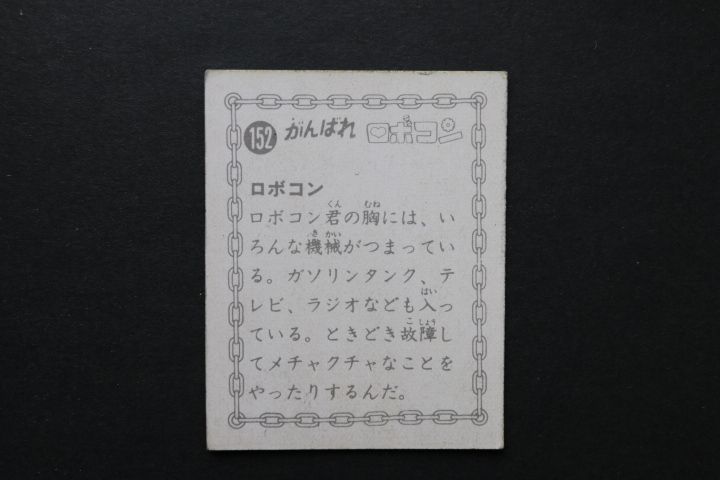 152 がんばれ ロボコン
ロボコン
ロボコン君の胸には、い
ろんな機械がつまってい
る。ガソリンタンク、テ
レビ、ラジオなども入っ
ている。ときどき故障し
てメチャクチャなことを
やったりするんだ。